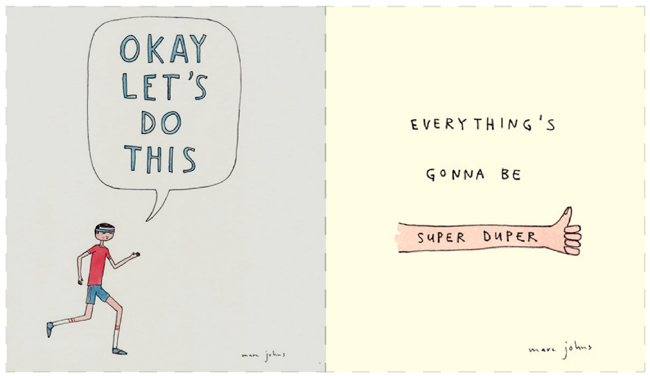 OKAY
LET'S
DO
THIS
marc johns
EVERYTHING'S
GONNA BE
SUPER DUPER
marc johns